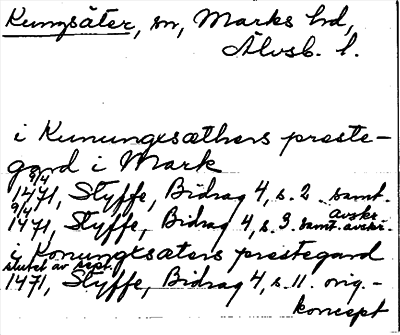 Kungsäter, sn, Marks hd,
Älvsb. l.
i Kunungxsæthers preste-
gard i Mark
9/4
1471, Styffe, Bidrag 4, s. 2. samt. avskr.
9/4
1471, Styffe, Bidrag 4, s. 3. samt. avskr.
i Konungxsæters prestegard
slutet av sept.
1471, Styffe, Bidrag 4, s. 11. orig.-
koncept